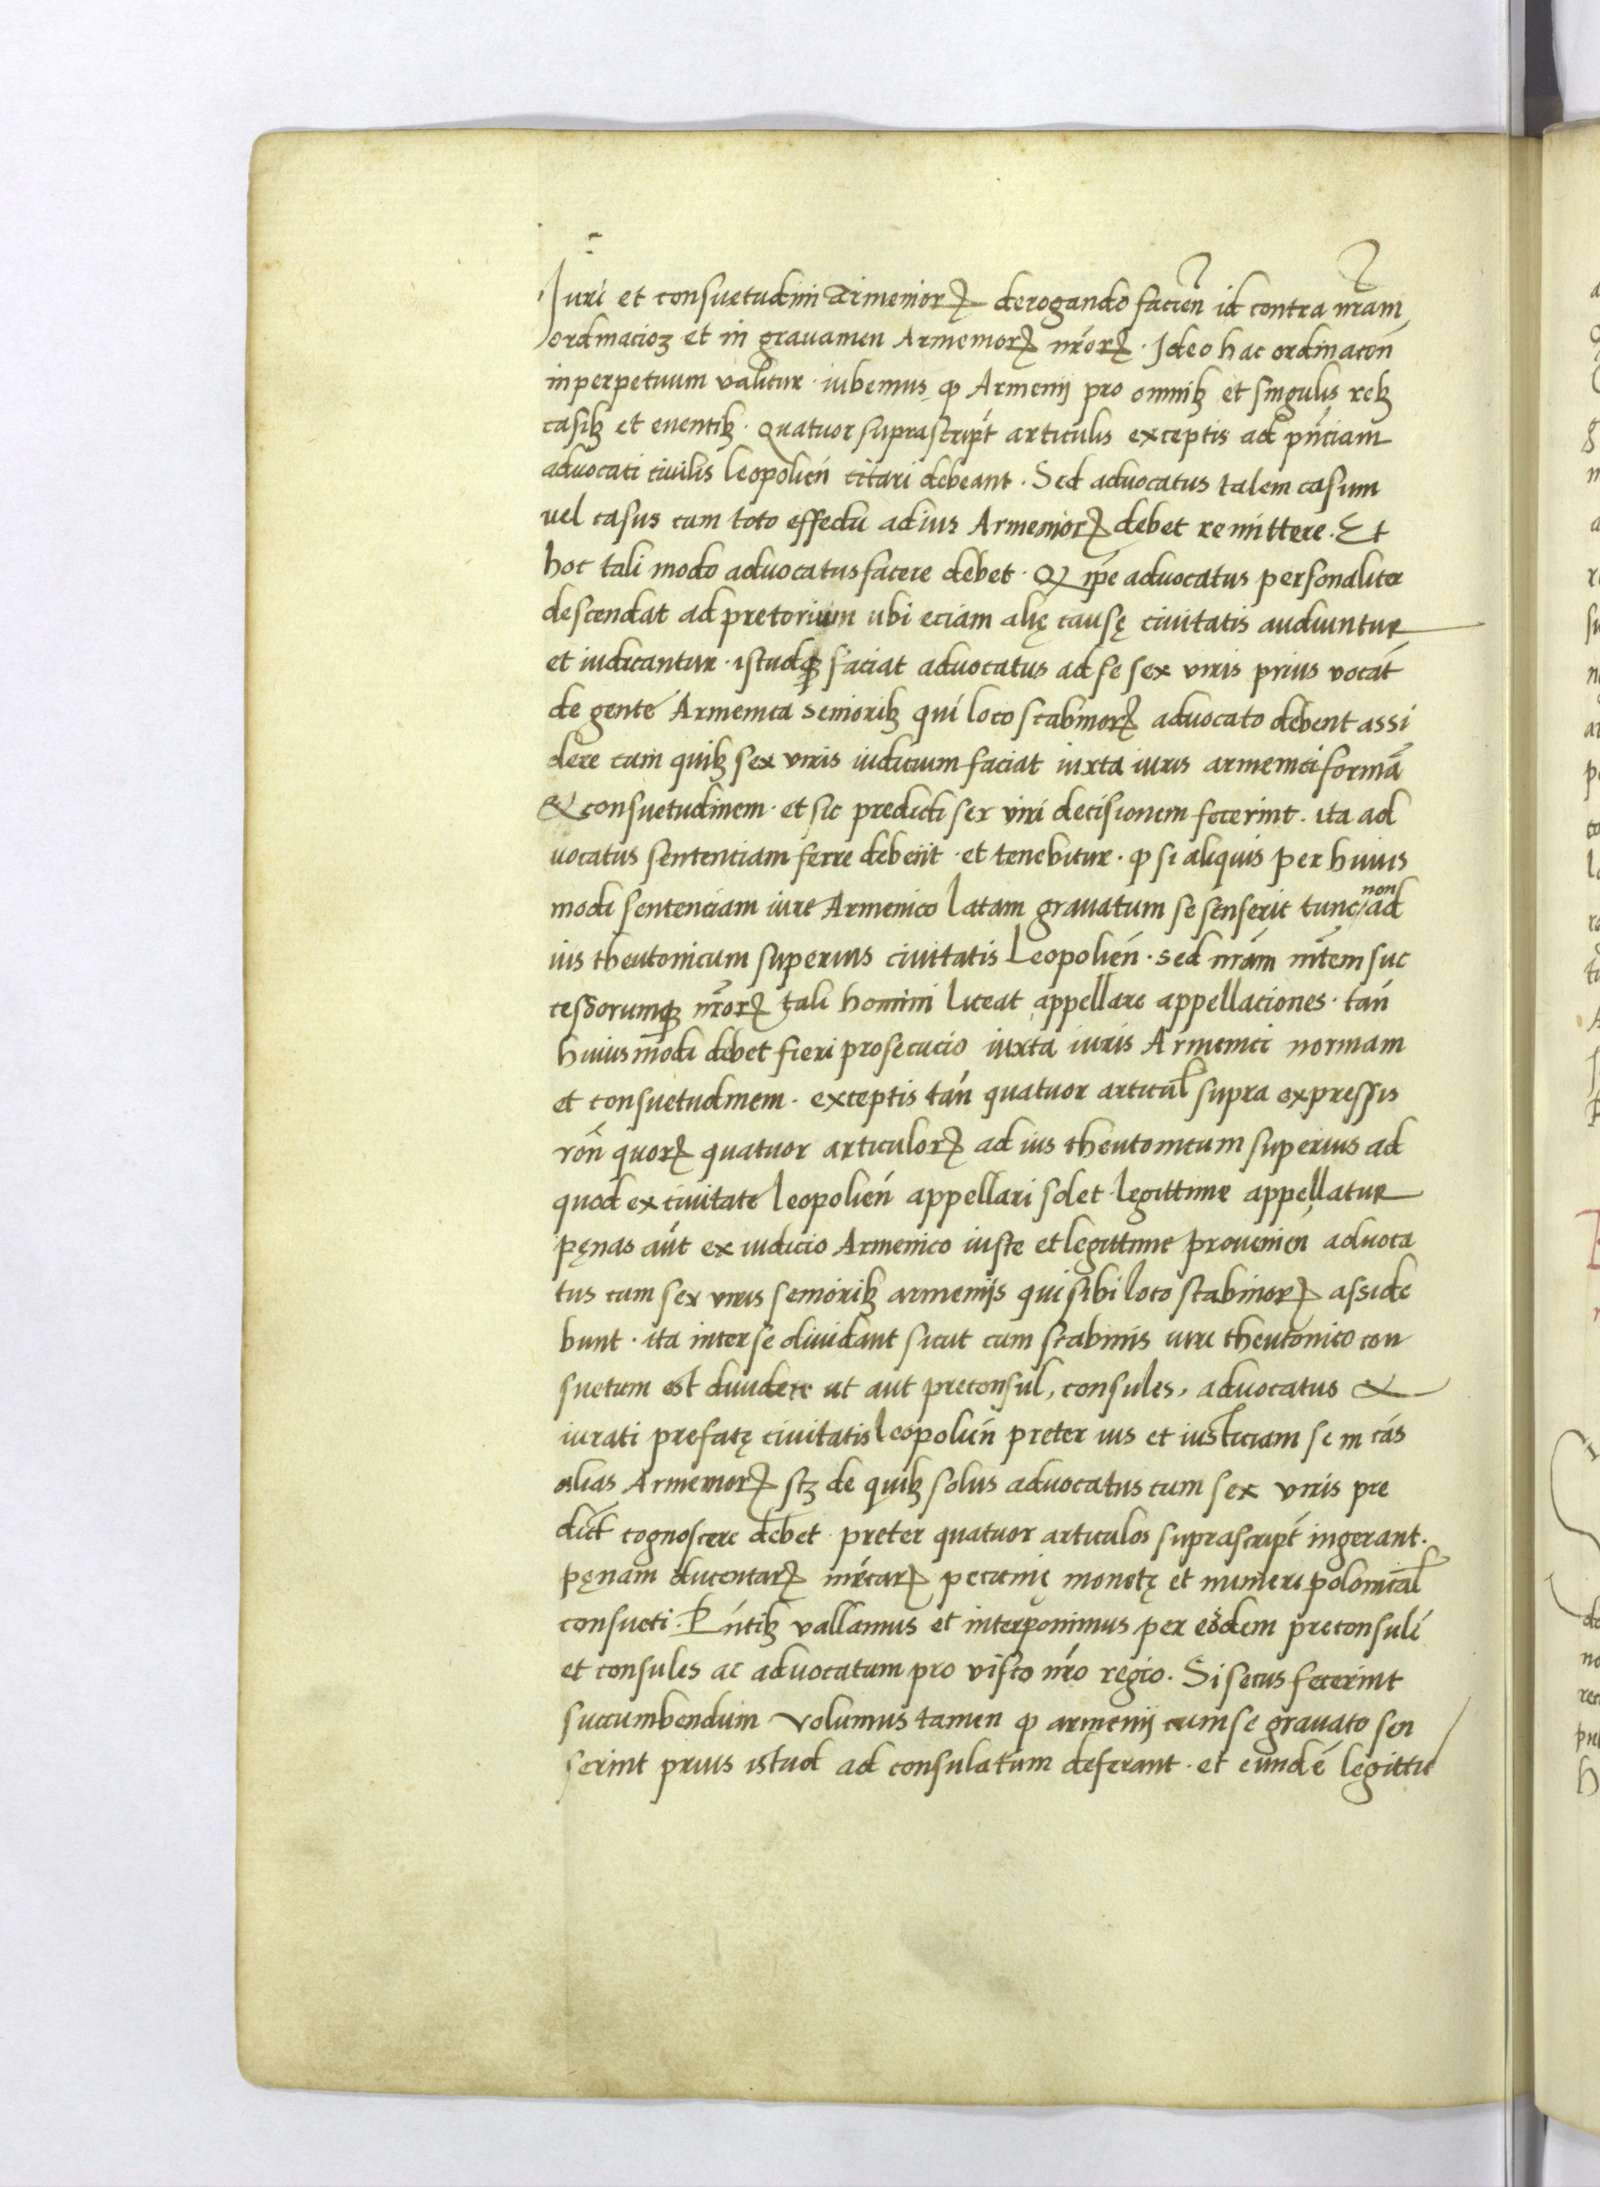 Iuri et consuetudini Armenioꝝ derogando facien̄ id contra nr̄am
ordinacioꝫ et in grauamen Armenioꝝ nr̄oꝝ. Ideo hac ordinacon̄
inperpetuum valitur. iubemus ꝙ Armenij pro omnibꝫ et singulis rebꝫ
casibꝫ et euentibꝫ. Quatuor suprascript̄ articulis exceptis ad pn̄ciam
aduocati ciuilis leopolien̄ citari debeant. Sed aduocatus talem casum
uel casus cum toto effectu ad ius Armenioꝝ debet remittere. Et
hoc tali modo aduocatus facere debet. Qꝫ ip̄e aduocatus personaliter
descendat ad pretorium ubi eciam alię causę ciuitatis audiuntur
et iudicantur. istudqꝫ faciat aduocatus ad se sex viris prius vocat̄
de gente Armenica seniorибꝫ qui loco scabinoꝝ aduocato debent assi
dere cum quibꝫ sex viris iudicium faciat iuxta iuris armenici formā
& consuetudinem. et sic predicti sex viri decisionem fecerint. ita ad
uocatus sentenciam ferre debeīt. et tenebitur. ꝙ si aliquis per huius
modi sentenciam iure Armenico latam grauatum se senserit tunc non ad
ius theutonicum superius ciuitatis Leopolien̄. sed nr̄am mītem suc
cessorumqꝫ nr̄oꝝ tali homini liceat appellare appellaciones. tan̄
huiusmodi debet fieri prosecucio iuxta iuris Armenici normam
et consuetudinem. exceptis tan̄ quatuor articul̄ supra expressis
rōn quoꝝ quatuor articuloꝝ ad ius theutonicum superius ad
quod ex ciuitate leopolien̄ appellari solet legittime appellatur
pęnas aūt ex iudicio Armenico iuste et legittime prouenien̄ aduoca
tus cum sex viris senioribꝫ armenijs qui sibi loco scabinoꝝ asside
bunt. ita inter se diuidant sicut cum scabinis iure theutonico con
suetum est diuidere ut aut preconsul, consules, aduocatus &
iurati prefatę ciuitatis leopolien̄ preter ius et iusticiam se in cās
alias Armenioꝝ scꝫ de quibꝫ solus aduocatus cum sex viris pre
dict̄ cognoscere debet. preter quatuor articulos suprascript̄ ingerant.
pęnam ducentaꝝ mr̄caꝝ pecunię monetę et numeri polonical̄
consueti. Pn̄tibꝫ vallamus et interponimus per eosdem preconsuli
et consules ac aduocatum pro visco nr̄o regio. Si secus fecerint
succumbendum volumus tamen ꝙ armenij cum se grauato sen
serint prius istud ad consulatum deferant. et eundē legitti